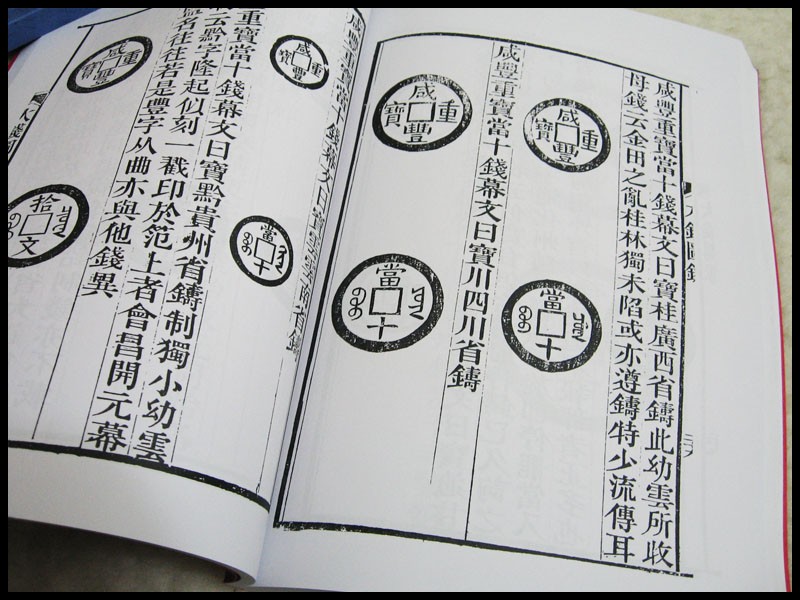 大錢圖錄
咸豐重寶當十錢幕文曰寶桂廣西省鑄此幼雲所收
母錢云金田之亂桂林獨未陷或亦遵鑄特少流傳耳
咸豐重寶
當十
咸豐重寶當十錢幕文曰寶川四川省鑄
咸豐重寶
當十
咸豐重寶當十錢幕文曰寶雲雲南省鑄
咸豐重寶
當十
重寶當十錢幕文曰寶黔貴州省鑄制獨小幼雲
云黔字隆起似刻一戳印於笵上者會昌開元幕
監名往往若是豐字从曲亦與他錢異
咸豐重寶
拾文